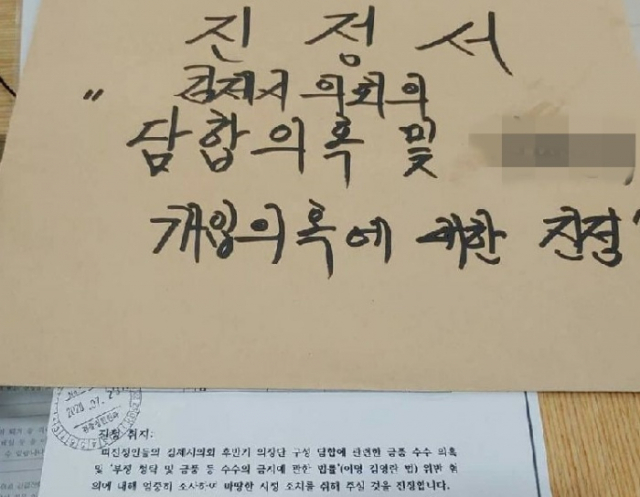 진 정 서
"김제시 의회의
담합의혹 및
개입의혹에 대한 진정"
2020. 07. 2
진정 취지:
피진정인들의 김제시의회 후반기 의장단 구성 담합에 관련한 금품 수수 의혹
및 '부정 청탁 및 금품 등 수수의 금지에 관한 법률'(이명 김영란 법) 위반 혐
의에 대해 엄중히 조사하여 마땅한 시정 조치를 취해 주실 것을 진정합니다.